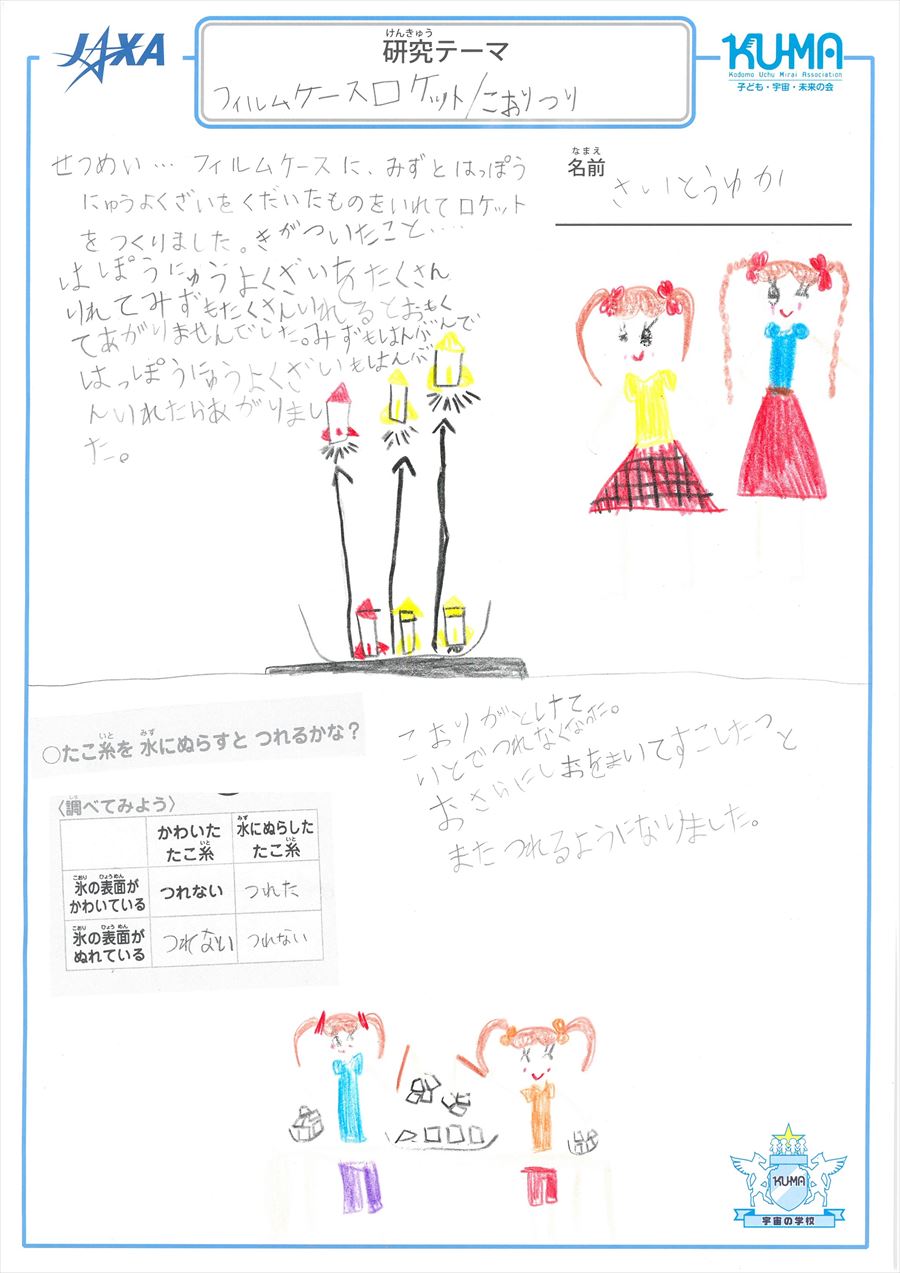 JAXA
けんきゅう
研究テーマ
フィルムケースロケット/こおりつり
KU-MA
Kodomo Uchu Mirai Association
子ども・宇宙・未来の会
せつめい… フィルムケースに、みずとはっぽう
にゅうよくざいをくだいたものをいれてロケット
をつくりました。きがついたこと‥‥
はっぽうにゅうよくざいをたくさん
いれてみずもたくさんいれるとおもく
てあがりませんでした。みずもはんぶんで
はっぽうにゅうよくざいもはんぶ
んいれたらあがりまし
た。
なまえ
名前
さいとうゆか
○たこ糸を 水にぬらすと つれるかな?
いと みず
しら
〈調べてみよう〉
かわいた たこ糸
いと
みず
水にぬらした たこ糸
いと
こおり ひょうめん
氷の表面が かわいている
つれない
つれた
こおり ひょうめん
氷の表面が ぬれている
つれない
つれない
こおりがとけてて、
いとでつれなくなった。
おさらにしおをまいてすこしたつと
またつれるようになりました。
KU-MA
宇宙の学校